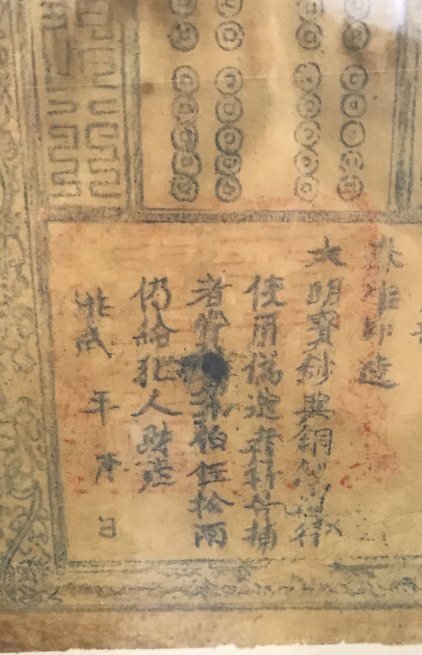 奏准印造
大明寶鈔與銅錢通行
使用偽造者斬告捕
者賞佰伍拾兩
仍給犯人財產
洪武 年 月 日